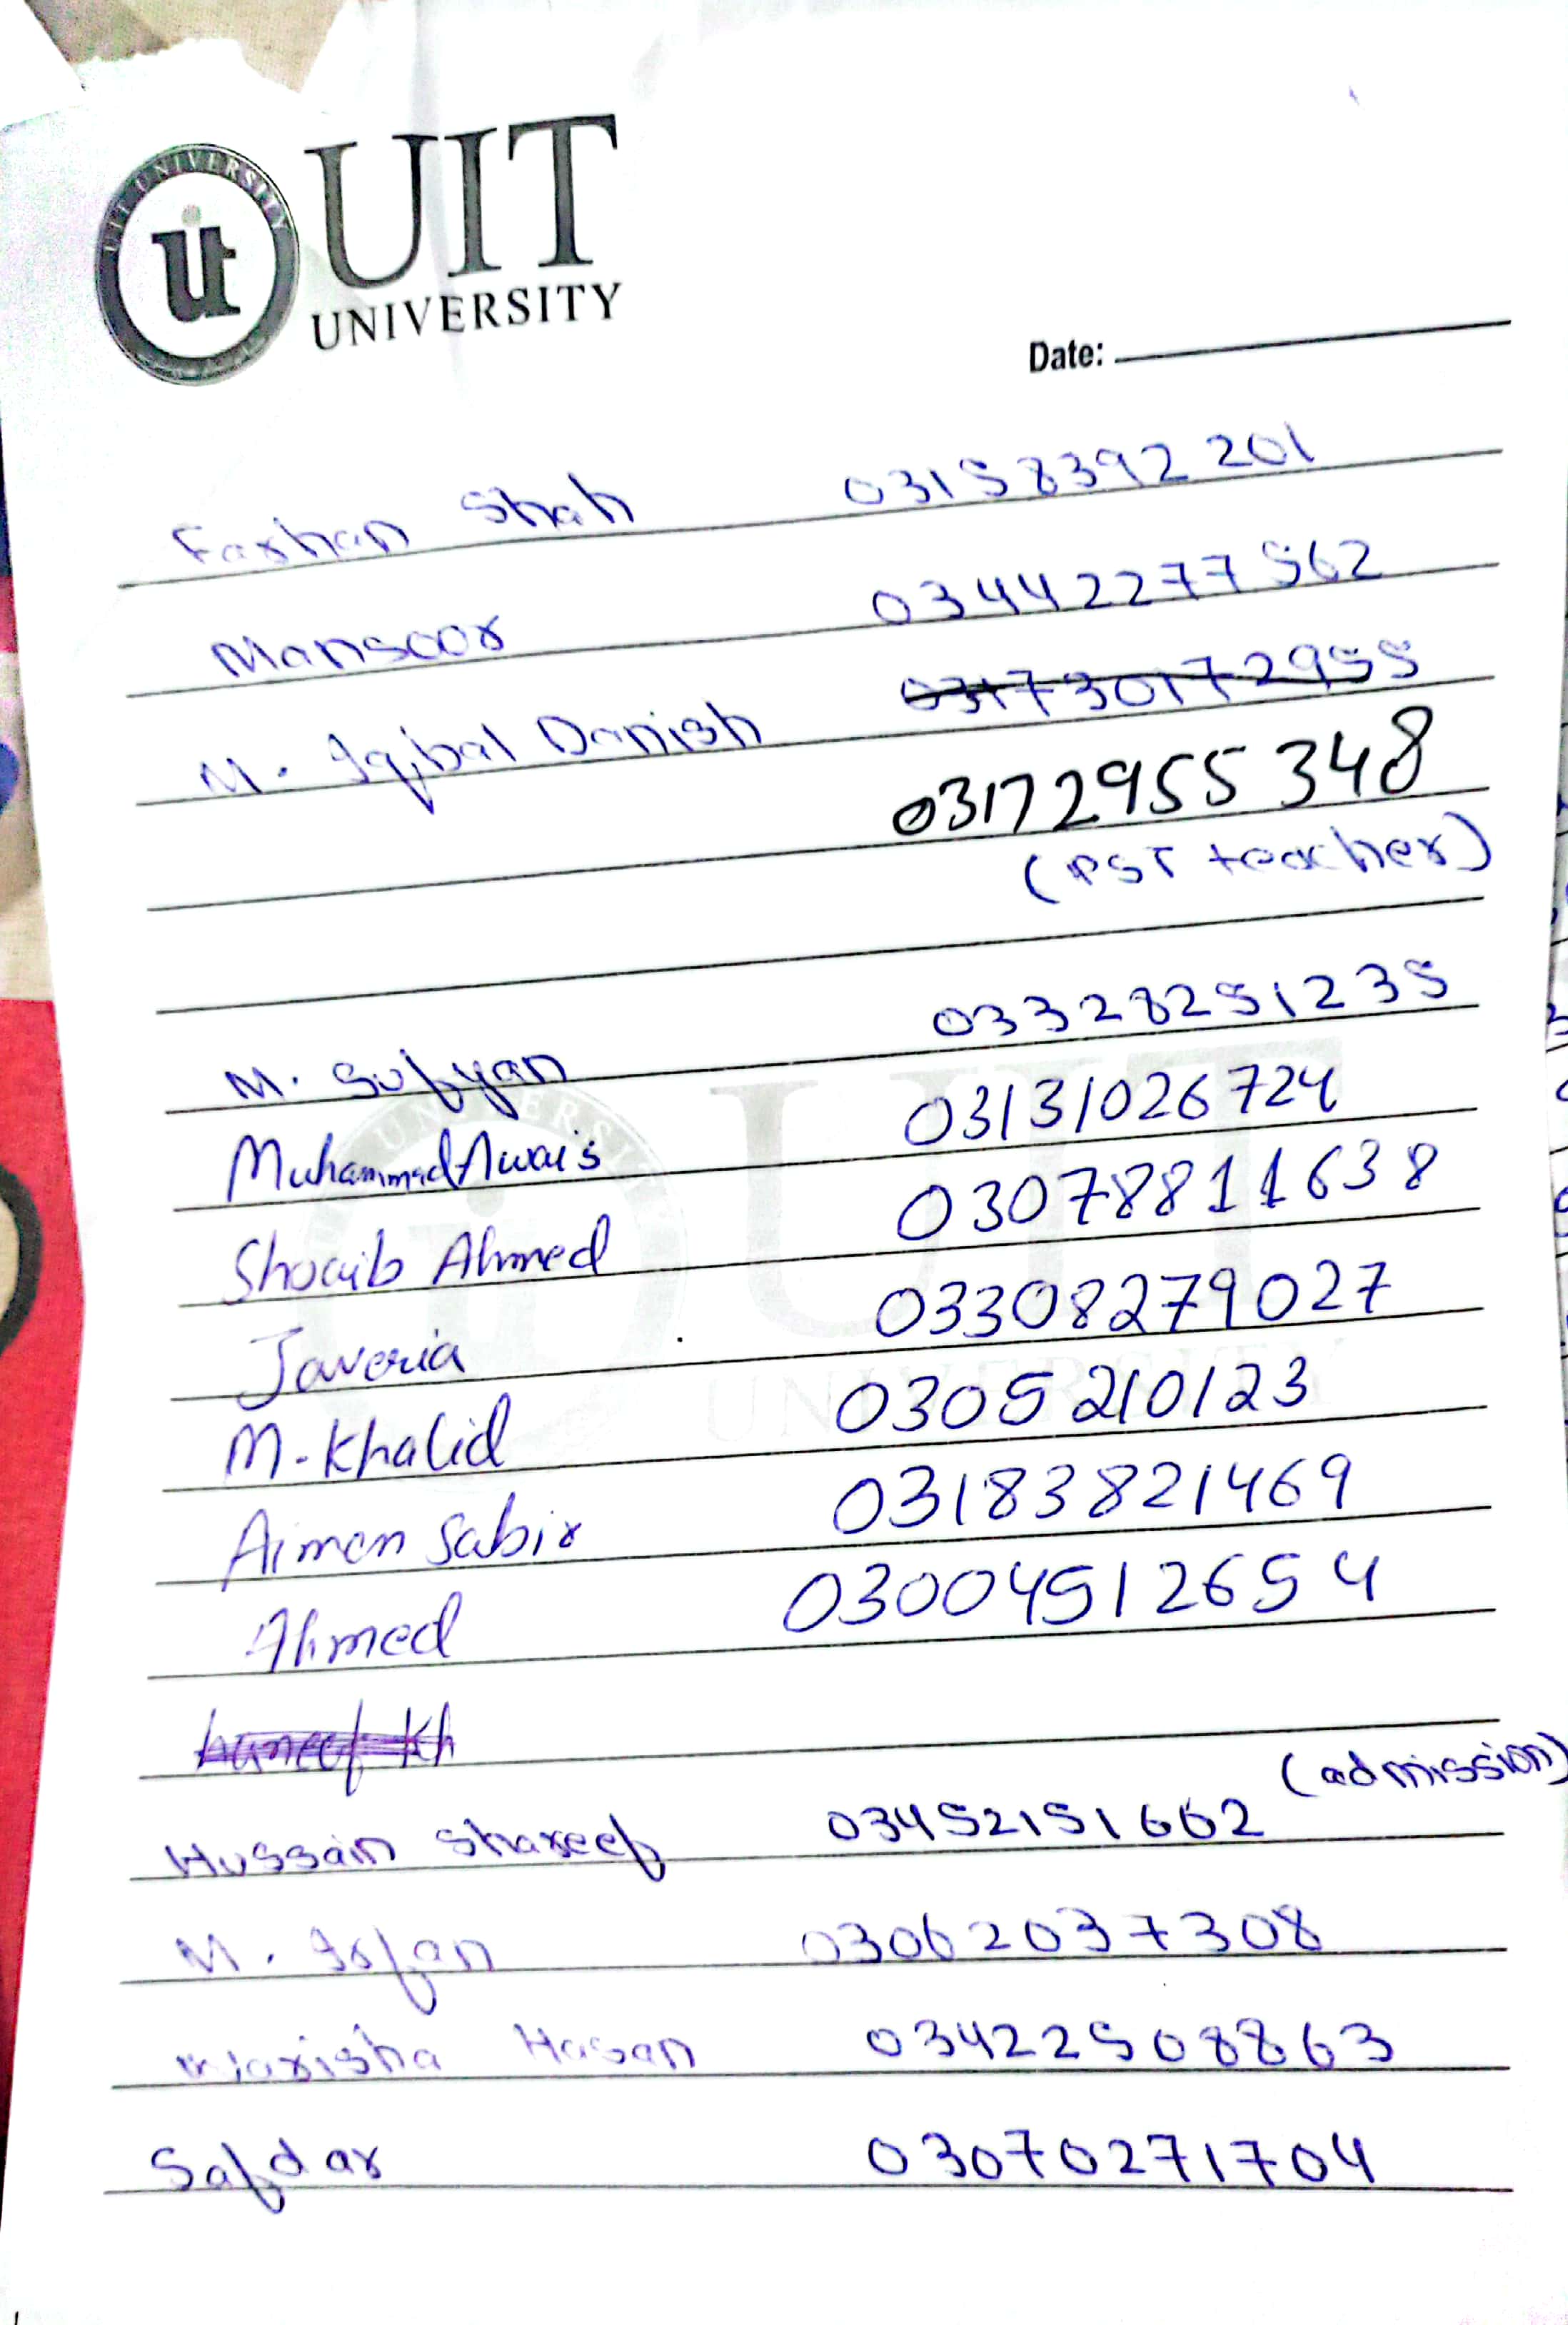 UIT UNIVERSITY
uit
UIT
UNIVERSITY
Date:
Farhan Shah 03158392201
Mansoor 03442277562
M. Iqbal Danish 031730172955
03172955348
(PST teacher)
M. Sufyan 03328251235
Muhammad Awais 03131026724
Shoaib Ahmed 03078811638
Javeria 03308279027
M. Khalid 0305210123
Aimen Sabir 03183821469
Ahmed 03004512654
haneef kh
(admission)
Hussain Shareef 03452151662
M. Irfan 03062037308
Hasan 03422508863
Safdar 03070271704